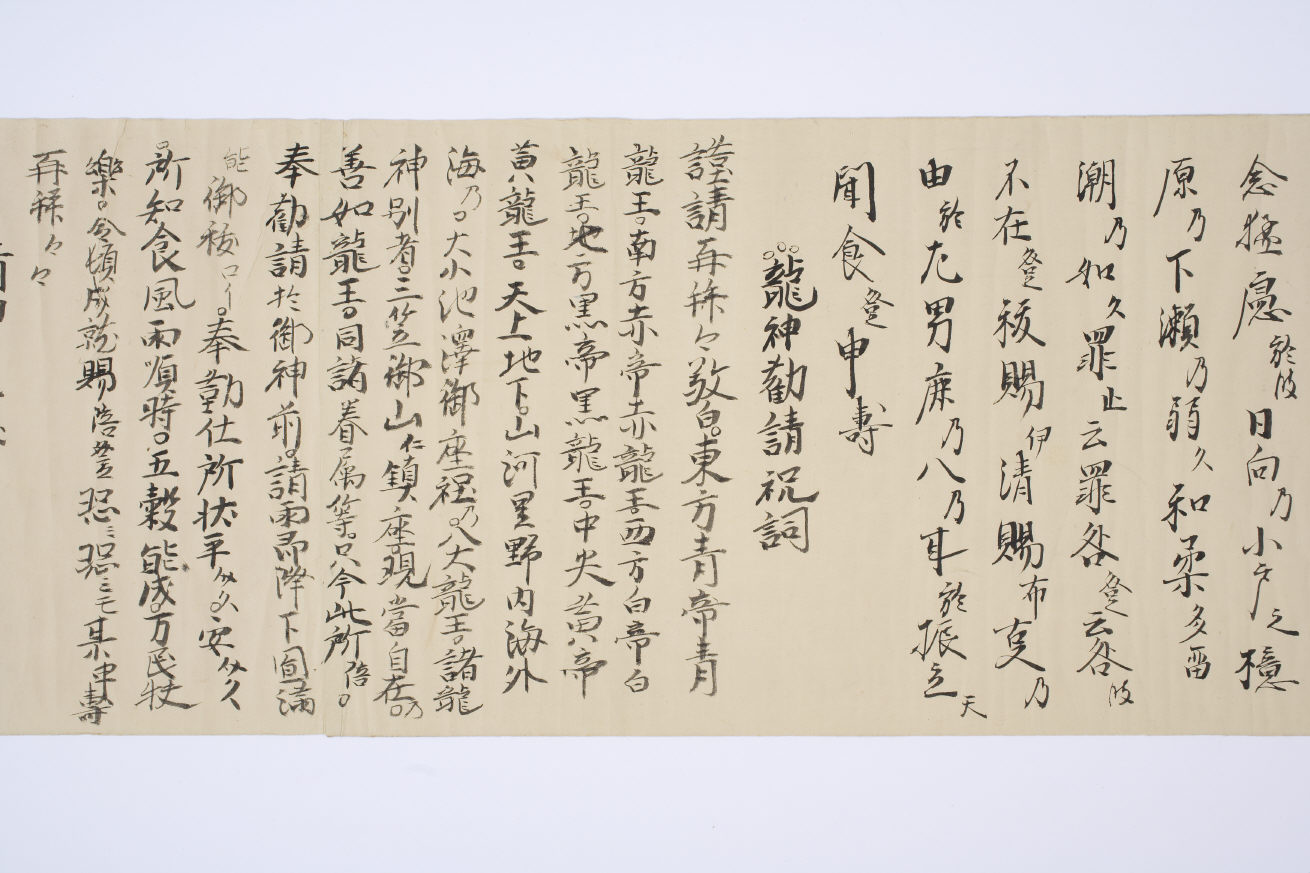 念猛慮於波日向乃小戸之檍
原乃下瀬乃弱久和柔多留
潮乃如久罪止云罪咎登云咎波
不在登祓賜伊清賜布吏乃
由於左男鹿乃八乃耳於振立天
聞食登申寿
龍神勧請祝詞
謹請再拝々敬白東方青帝青
龍王南方赤帝赤龍王西方白帝白
龍王地方黒帝黒龍王中央黄帝
黄龍王天上地下山河里野内海外
海乃大小池澤御座程乃八大龍王諸龍
神別者三笠御山仁鎮座現當自在乃
善如龍王同諸眷属等只今此所
奉勧請於御神前請雨而降下圓満
能御祓奉勤仕所状平久安久
所知食風雨順時五穀能成万民
樂令頓成就賜倍登恐三恐三毛某申壽
再拝々々